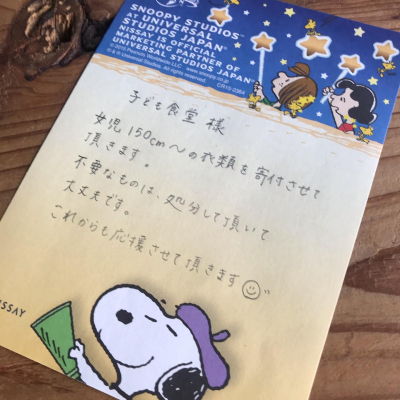 SNOOPY STUDIOS™
AT UNIVERSAL
STUDIOS JAPAN™
NISSAY IS OFFICIAL
MARKETING PARTNER OF
UNIVERSAL STUDIOS JAPAN™
© 2015 Peanuts Worldwide LLC www.snoopy.co.jp
® & © Universal Studios. All rights reserved. CR15-0364
子ども食堂 様
女児 150cm〜の衣類を寄付させて
頂きます。
不要なものは、処分して頂いて
大丈夫です。
これからも応援させて頂きます
ISSAY